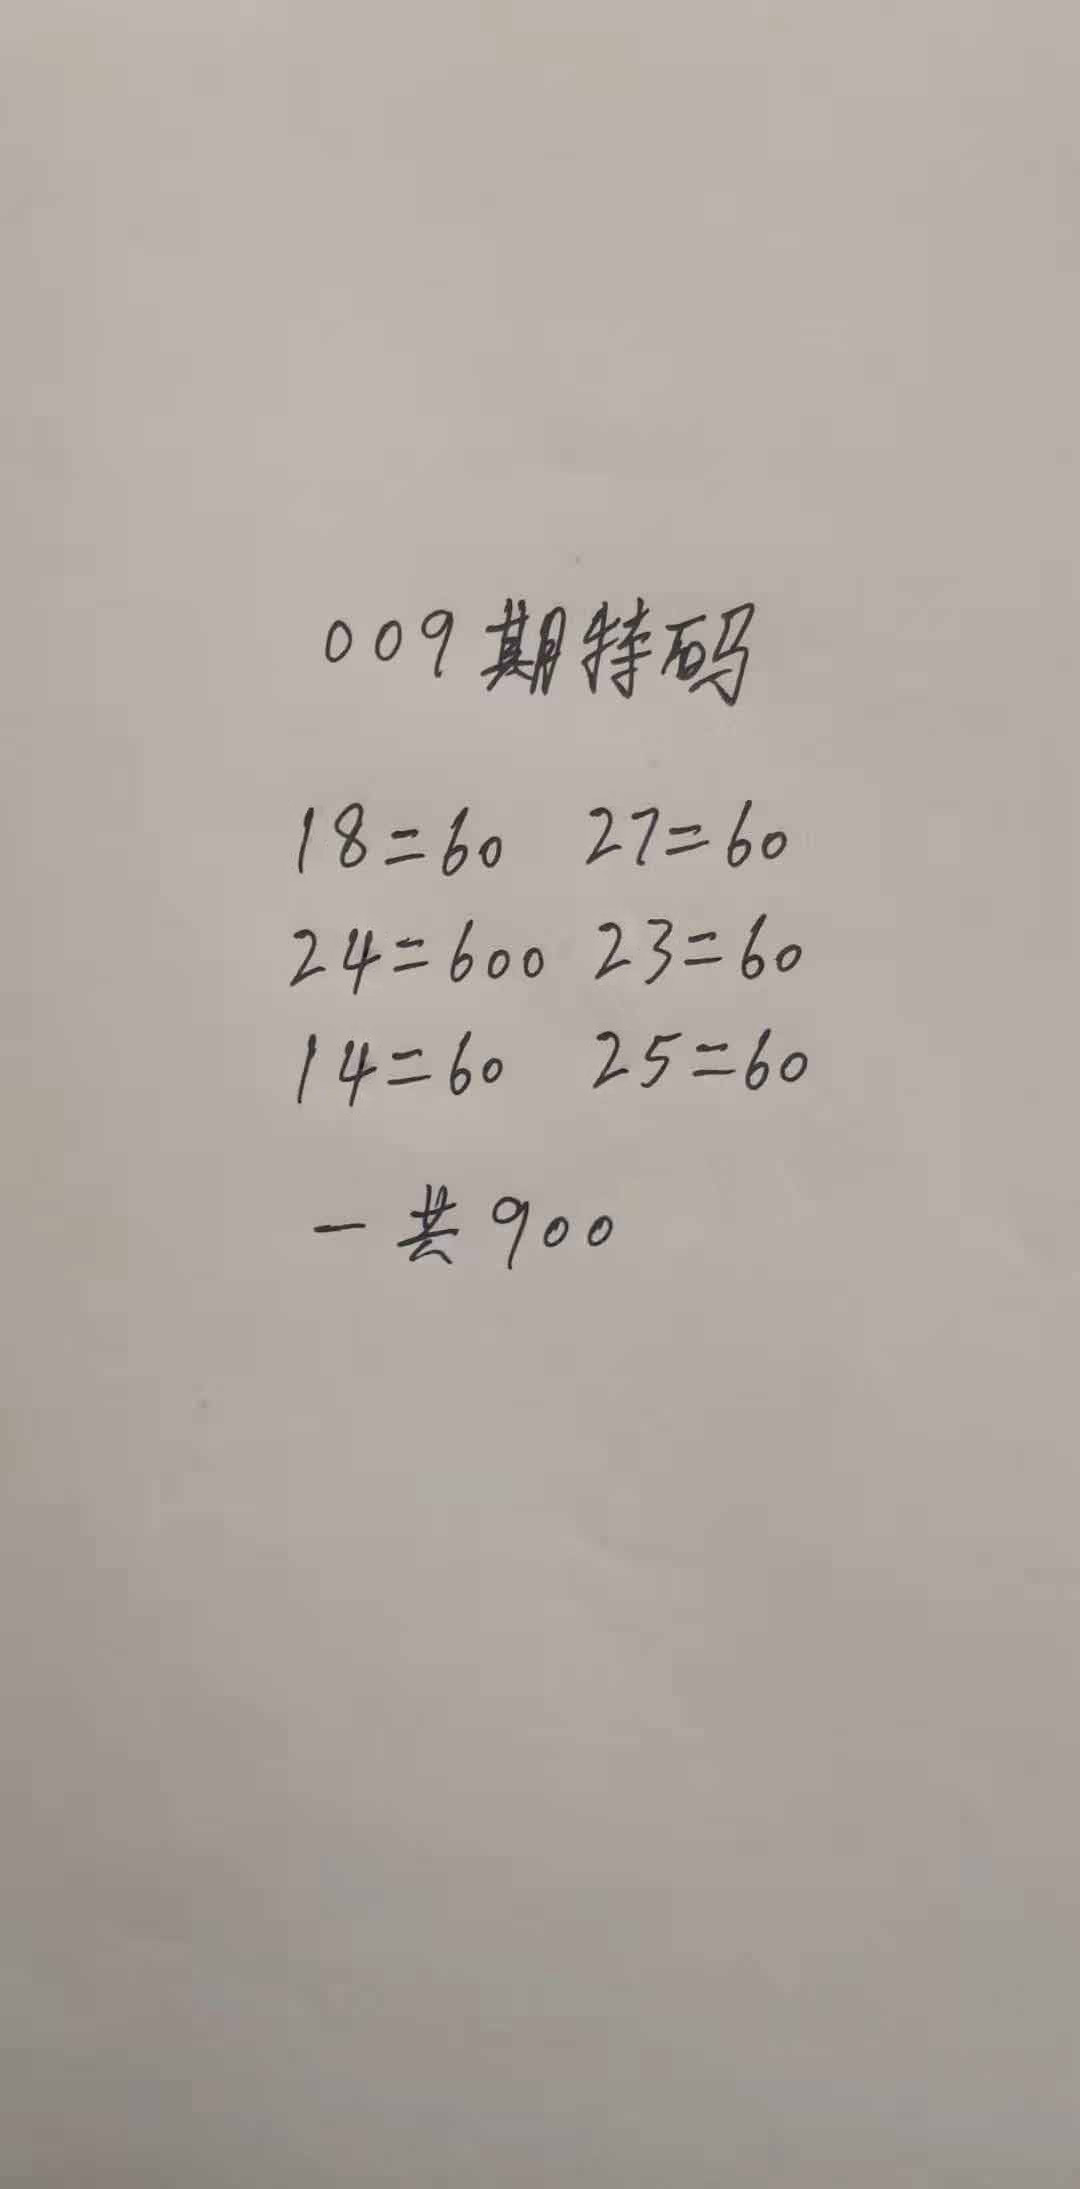 009期特码
18=60 27=60
24=600 23=60
14=60 25=60
一共900